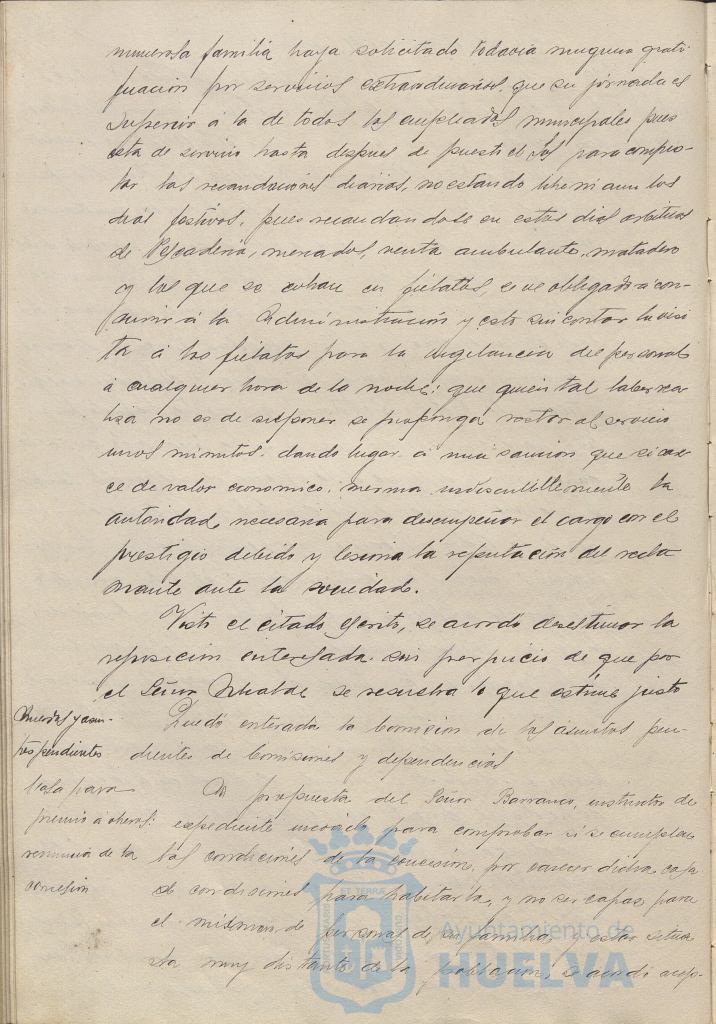 numerosa familia haya solicitado todavia ninguna grati-
ficación por servicios extraordinarios, que su jornada es
superior a la de todos los empleados municipales pues
está de servicio hasta despues de puesto el Sol para comple-
tar las recaudaciones diarias, no estando libre ni aun los
dias festivos, pues recaudandose en estos dias arbitrios
de Pescaderia, mercados, venta ambulante, matadero
y los que se cobran en fielatos, se ve obligado a con-
currir á la Administración y esto sin contar la visi-
ta á los fielatos para la vigilancia del personal
á cualquier hora de la noche; que quien tal labor rea-
liza no es de suponer se proponga restar al servicio
unos minutos, dando lugar á una sancion que si care-
ce de valor economico, merma indiscutiblemente la
autoridad necesaria para desempeñar el cargo con el
prestigio debido y lesiona la reputación del recla-
mante ante la sociedad.
Visto el citado escrito, se acordó desestimar la
reposicion interesada sin perjuicio de que por
el Señor Alcalde se resuelva lo que estime justo
asun-
tos pendientes
Quedó enterada la Comision de los asuntos pen-
dientes de Comisiones y dependencias
Casa para
premio á obreros:
renuncia de la
concesion
A propuesta del Señor Barranco, instructor de
expediente incoado para comprobar si se cumplen
las condiciones de la concesion, por carecer dicha casa
de condiciones para habitarla, y no ser capaz para
el número de personas de su familia, y estar situa-
da muy distante de la poblacion, se acordó acep-
Ayuntamiento de
HUELVA